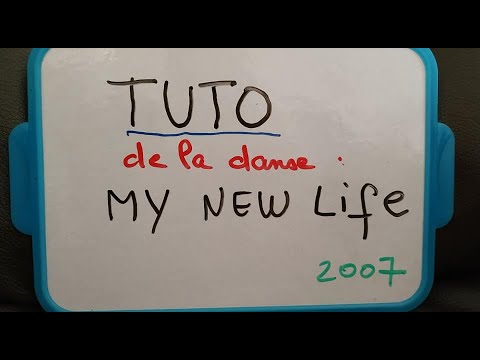 TUTO
de la danse :
MY NEW Life
2007